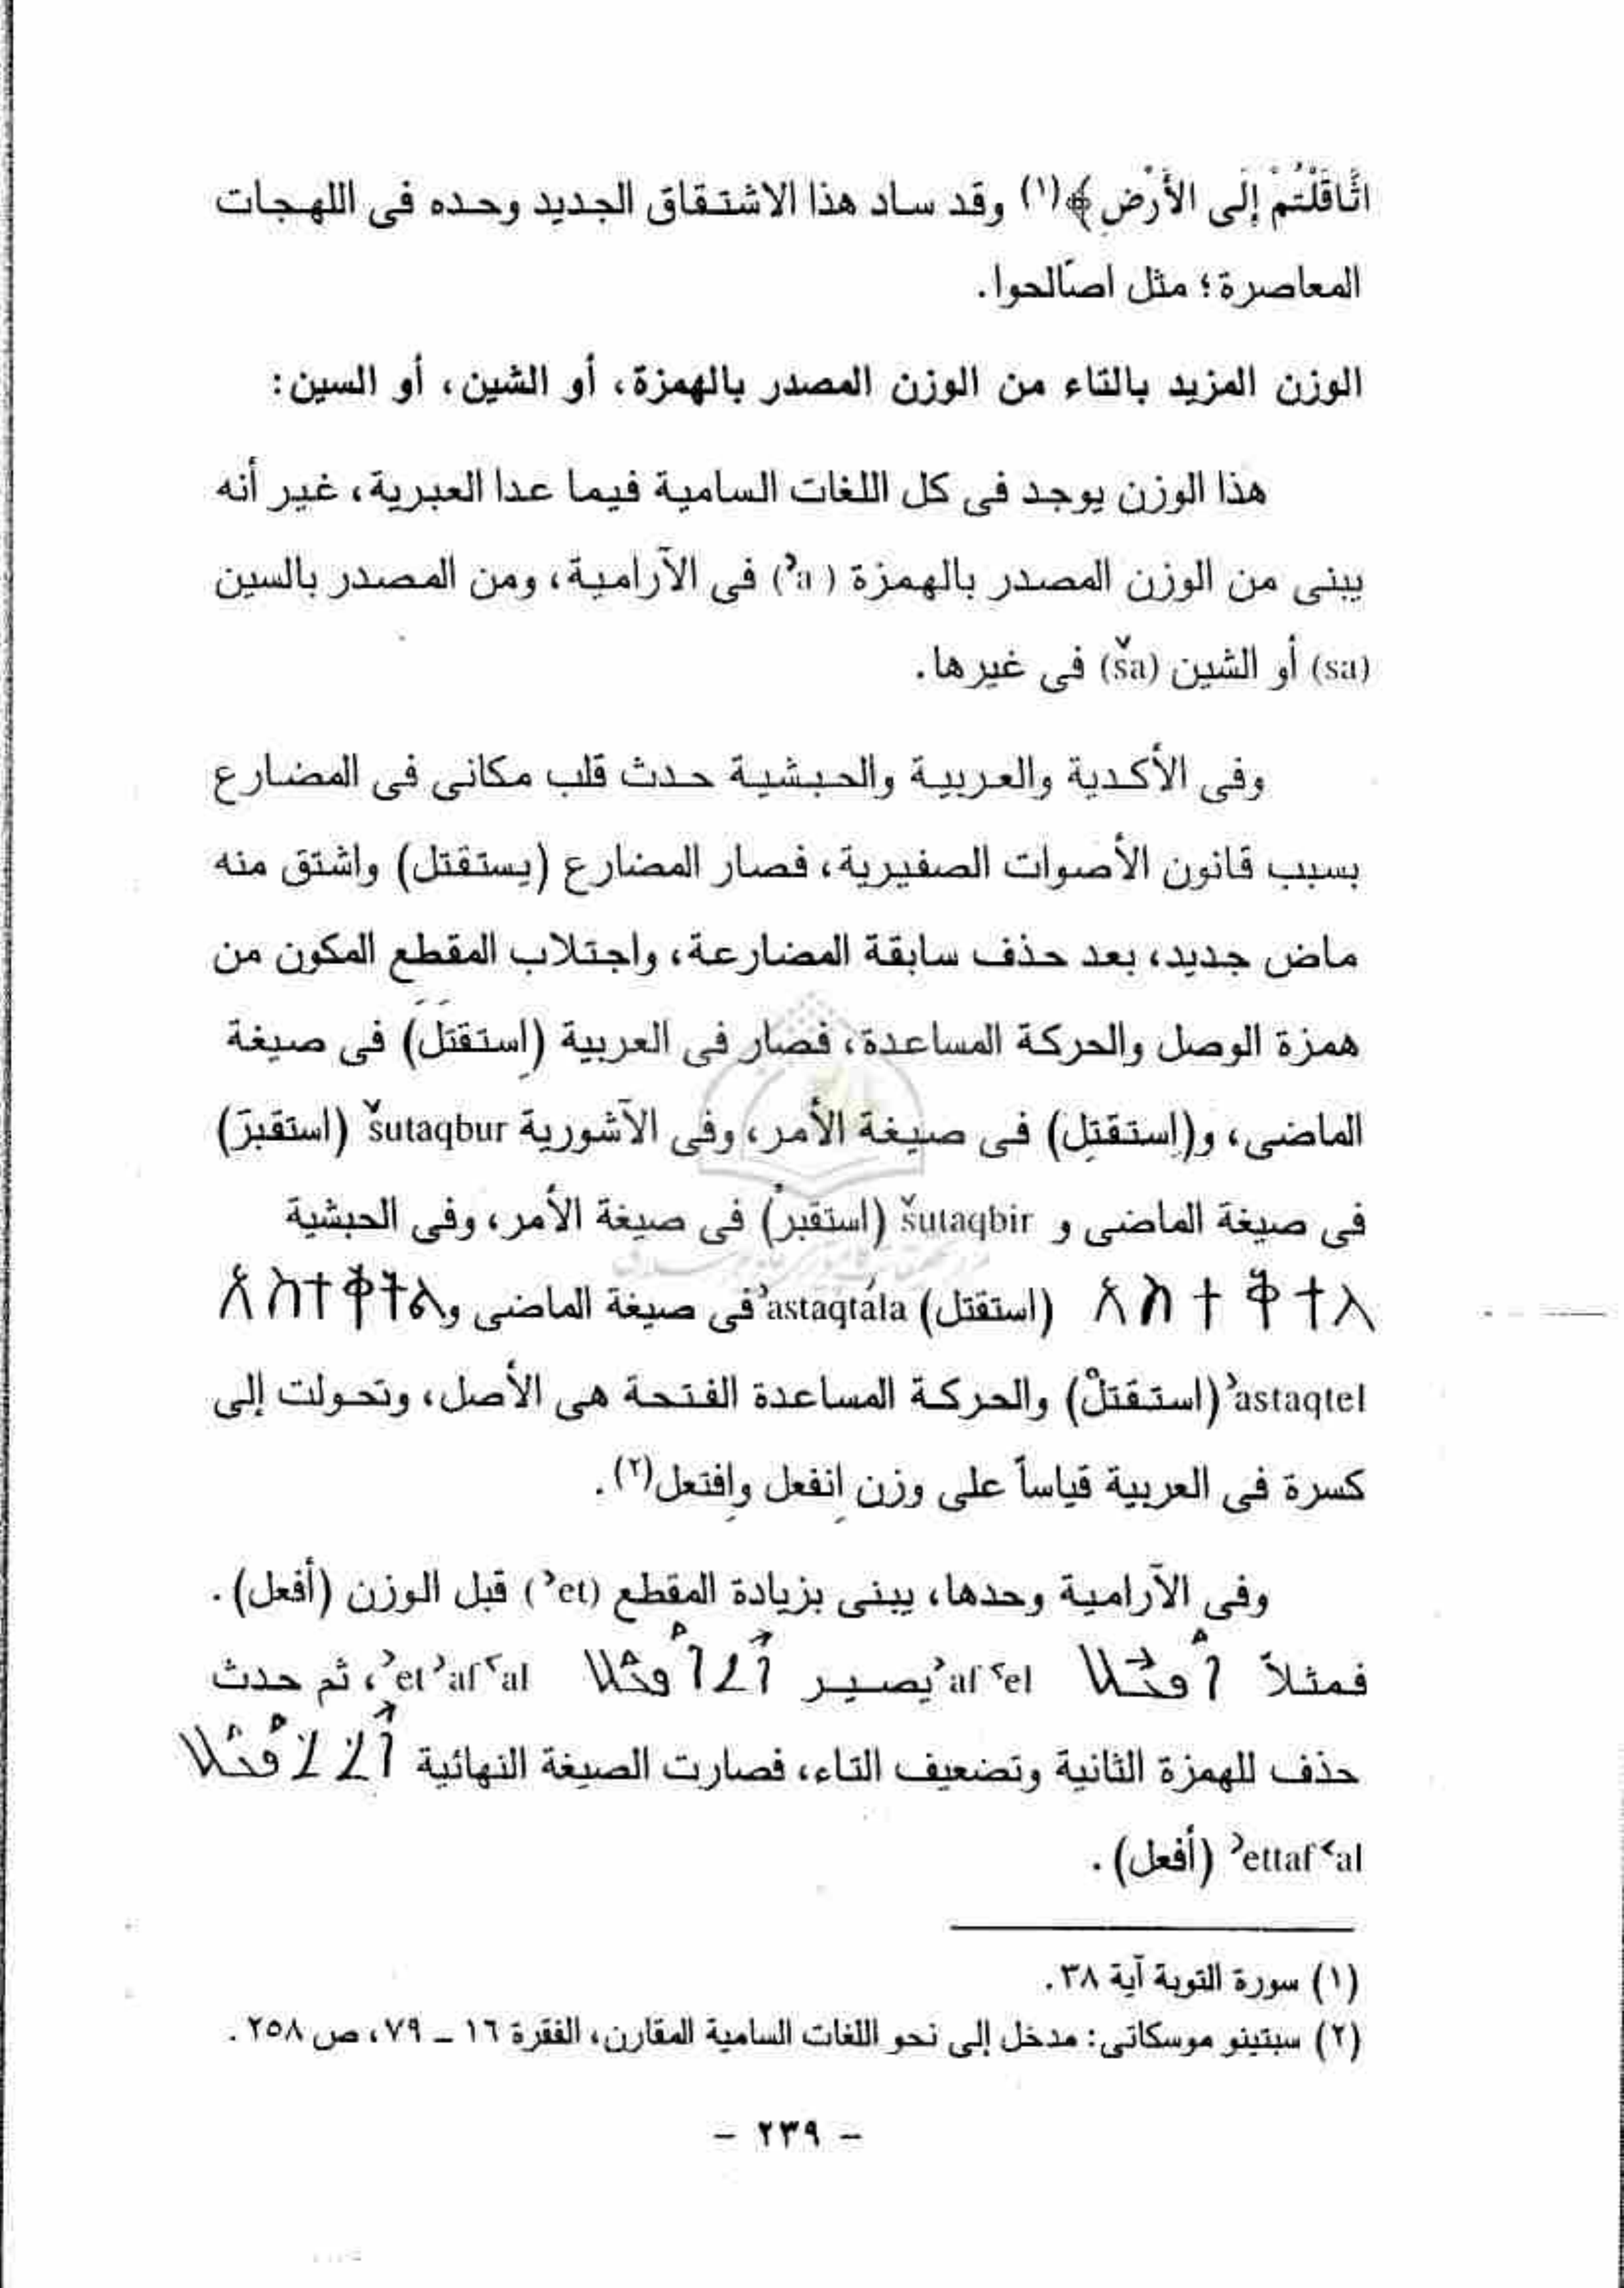 اثَّاقَلْتُمْ إِلَى الأَرْضِ﴾(١) وقد ساد هذا الاشتقاق الجديد وحده فى اللهجات
المعاصرة؛ مثل اصّالحوا.
الوزن المزيد بالتاء من الوزن المصدر بالهمزة، أو الشين، أو السين:
هذا الوزن يوجد فى كل اللغات السامية فيما عدا العبرية، غير أنه
يبنى من الوزن المصدر بالهمزة (ʾa) فى الآرامية، ومن المصدر بالسين
(sa) أو الشين (ša) فى غيرها.
وفى الأكدية والعربية والحبشية حدث قلب مكانى فى المضارع
بسبب قانون الأصوات الصفيرية، فصار المضارع (يستقتل) واشتق منه
ماض جديد، بعد حذف سابقة المضارعة، واجتلاب المقطع المكون من
همزة الوصل والحركة المساعدة، فصار فى العربية (اِستقتَلَ) فى صيغة
الماضى، و(اِستقتِل) فى صيغة الأمر، وفى الآشورية šutaqbur (استقبرَ)
فى صيغة الماضى و šutaqbir (استقبرْ) فى صيغة الأمر، وفى الحبشية
(استقتل) ʾastaqtála فى صيغة الماضى و
ʾastaqtel (استقتلْ) والحركة المساعدة الفتحة هى الأصل، وتحولت إلى
كسرة فى العربية قياساً على وزن اِنفعل واِفتعل(٢).
وفى الآرامية وحدها، يبنى بزيادة المقطع (ʾet) قبل الوزن (أفعل).
فمثلاً ʾafʿel يصير ʾetʾafʿal، ثم حدث
حذف للهمزة الثانية وتضعيف التاء، فصارت الصيغة النهائية
ʾettafʿal (أفعل).
(١) سورة التوبة آية ٣٨.
(٢) سبتينو موسكاتى: مدخل إلى نحو اللغات السامية المقارن، الفقرة ١٦ – ٧٩، ص ٢٥٨.
– ٢٣٩ –